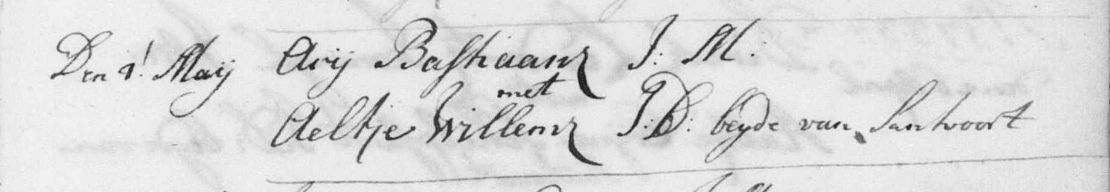 Den 1: May Arij Bastiaanz J: M:
met
Aeltje Willemz J: D: beyde van Santvoort